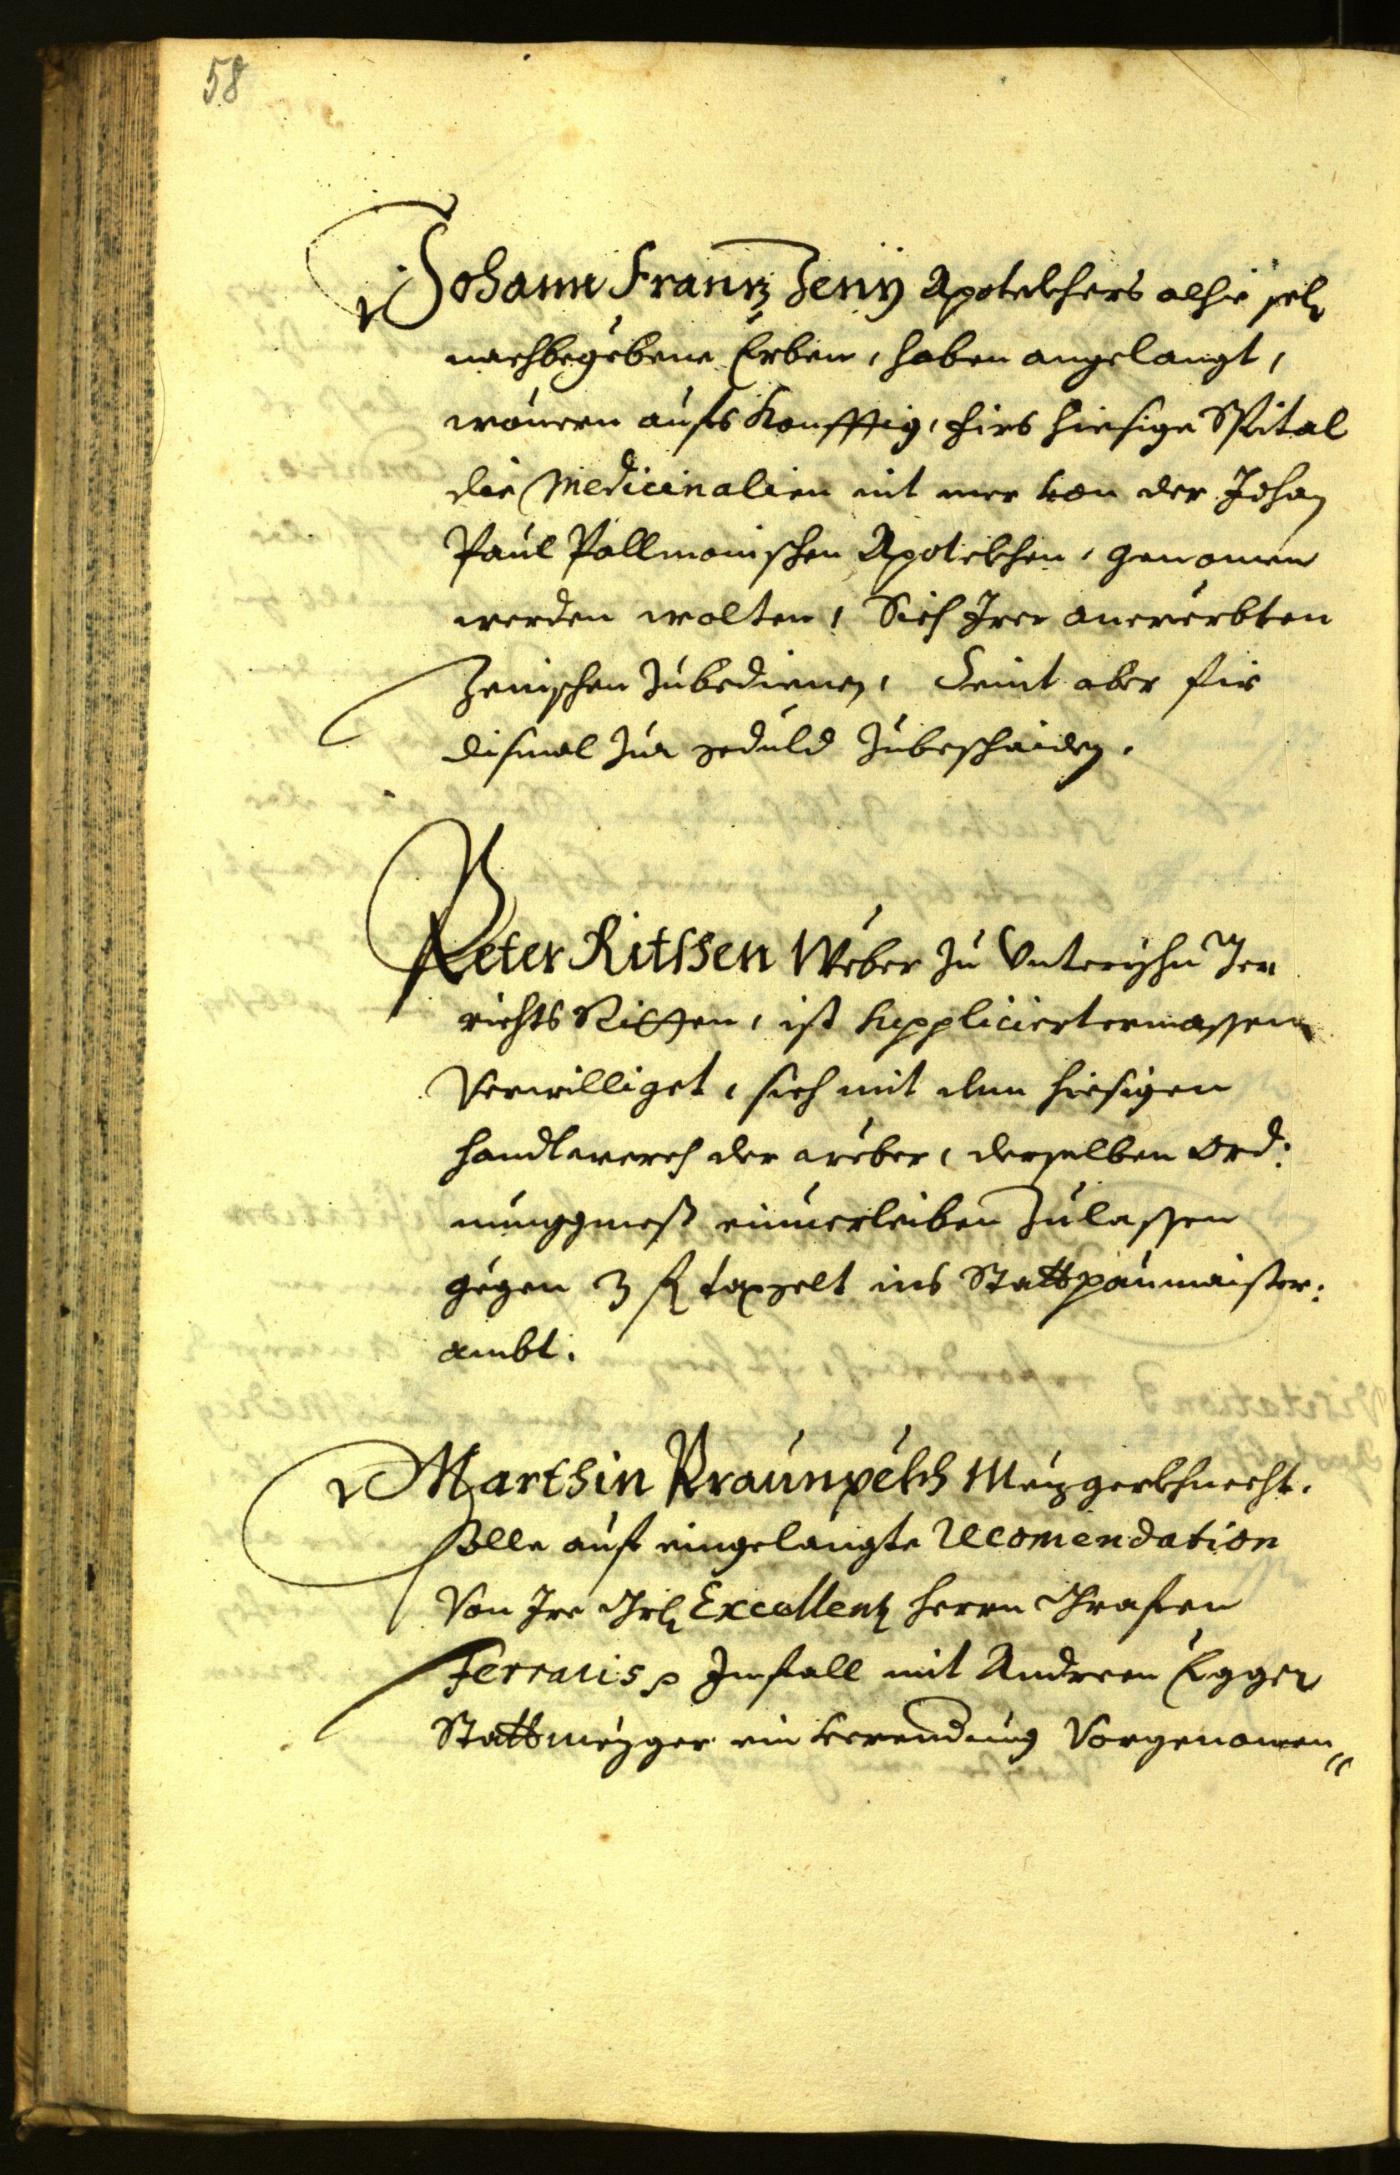 58
Johann Frantz Zeny Apoteckhers alhie sel:
nachbegebene Erben, haben angelangt,
wouern aufs Konfftig, firs hiesige Spital
die Medicinalien nit mer von der Johan
Paul Pallmonischen Apoteckhen, genomen
werden wolten, Sich Irer anererbten
Zenischen zubedienen, Seint aber fir
dismal zur geduld zubeschaiden.
Peter Ritssen Weber zu Vnterishn Ge
richts Ritten, ist supplicirtermassen
Verwilliget, sich mit dem hiesigen
handtwerch der weber, derselben Ord:
nunggmeß einuerleiben zulassen
gegen 3 fl taxgelt ins Stattpaumaister:
ambt.
Marthin Praunpekh Mezgerkhnecht.
solle auf eingelangte Recomendation
Von Ire Excellentz herrn Grafen
Ferraris p Imfall mit Andreen Egger
Stattmezger ein verendung Vorgenomen